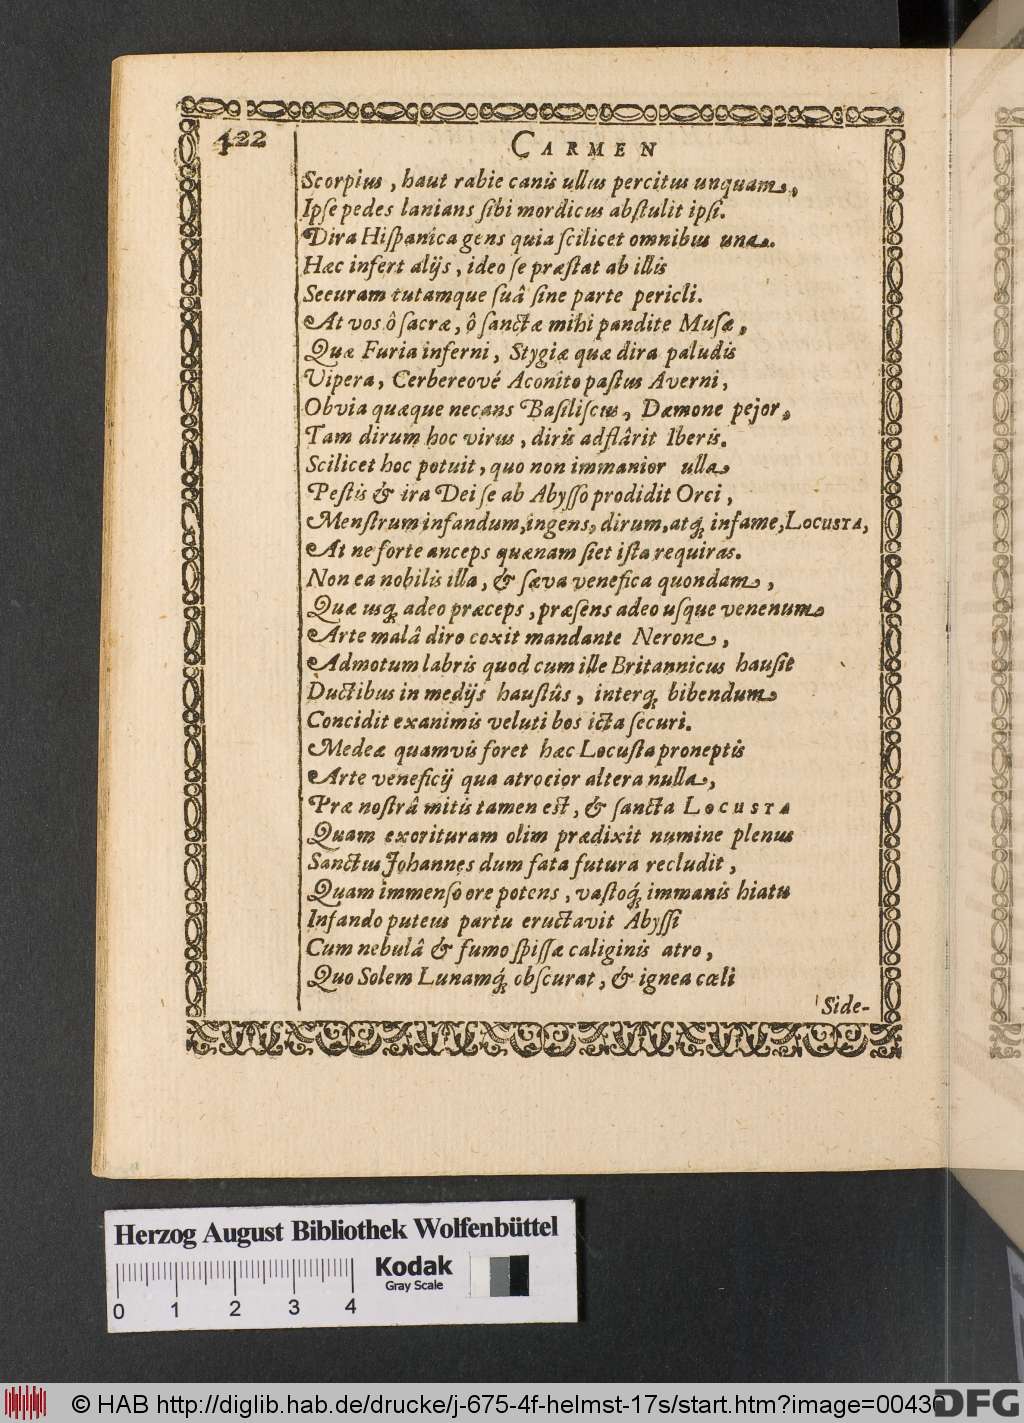 422
CARMEN
Scorpius, haut rabie canis ullus percitus unquam,
Ipse pedes lanians sibi mordicus abstulit ipsi.
Dira Hispanica gens quia scilicet omnibus una.
Hæc infert alijs, ideo se præstat ab illis
Securam tutamque suâ sine parte pericli.
At vos ô sacræ, ô sanctæ mihi pandite Musæ,
Quæ Furia inferni, Stygiæ quæ dira paludis
Vipera, Cerbereové Aconito pastus Averni,
Obvia quæque necans Basiliscus, Dæmone pejor,
Tam dirum hoc virus, diris adflârit Iberis.
Scilicet hoc potuit, quo non immanior ulla
Pestis & ira Dei se ab Abysso prodidit Orci,
Menstrum infandum, ingens, dirum, atq; infame, LOCUSTA,
At ne forte anceps quænam siet ista requiras.
Non ea nobilis illa, & sæva venefica quondam,
Quæ usq; adeo præceps, præsens adeo usque venenum
Arte malâ diro coxit mandante Nerone,
Admotum labris quod cum ille Britannicus hausit
Ductibus in medijs haustûs, interq; bibendum
Concidit exanimis veluti bos icta securi.
Medeæ quamvis foret hæc Locusta proneptis
Arte veneficij qua atrocior altera nulla,
Præ nostrâ mitis tamen est, & sancta LOCUSTA
Quam exorituram olim prædixit numine plenus
Sanctus Johannes dum fata futura recludit,
Quam immenso ore potens, vastoq; immanis hiatu
Infando puteus partu eructavit Abyssi
Cum nebulâ & fumo spissæ caliginis atro,
Quo Solem Lunamq; obscurat, & ignea cœli
Side-
Herzog August Bibliothek Wolfenbüttel
Kodak
Gray Scale
0 1 2 3 4
© HAB http://diglib.hab.de/drucke/j-675-4f-helmst-17s/start.htm?image=00430
DFG